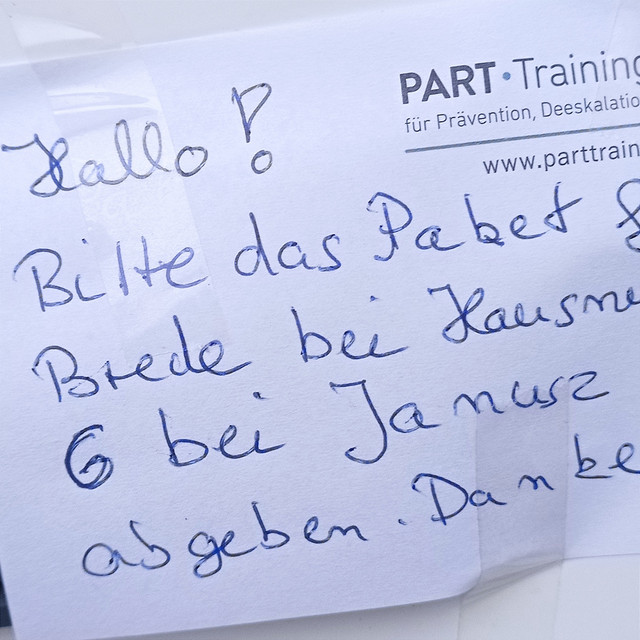 PART·Training
für Prävention, Deeskalatio
www.parttrain
Hallo!
Bitte das Paket
Brede bei Hausnu
6 bei Janusz
abgeben. Danke